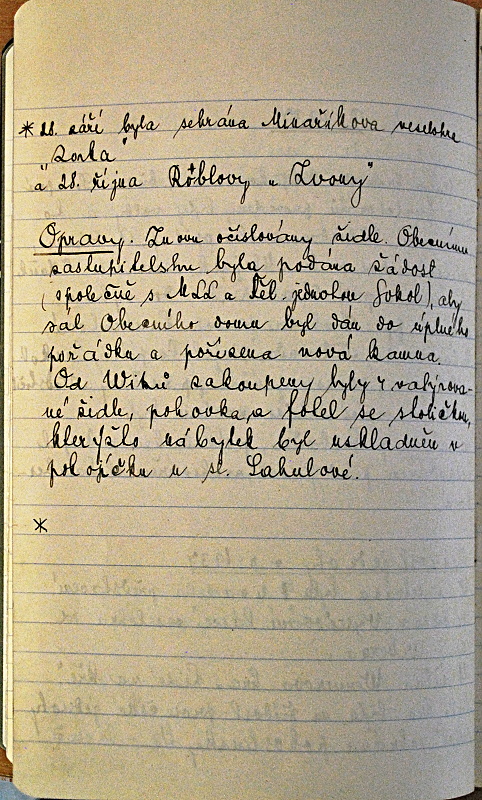 * 28. září byla sehrána Minaříkova veselohra
"Zorka"
a 28. října Röblovy „Zvony"
Opravy. Znovu očíslovány židle. Obecnímu
zastupitelstvu byla podána žádost
(společně s MLL a Těl. jednotou Sokol), aby
sál Obecního domu byl dán do úplného
pořádku a pořízena nová kamna.
Od Wiků zakoupeny byly 4 vyřezáva-
né židle, pohovka, a fotel se stoličkou,
kterýžto nábytek byl uskladněn v
pokojíčku u sl. Lahulové.
*